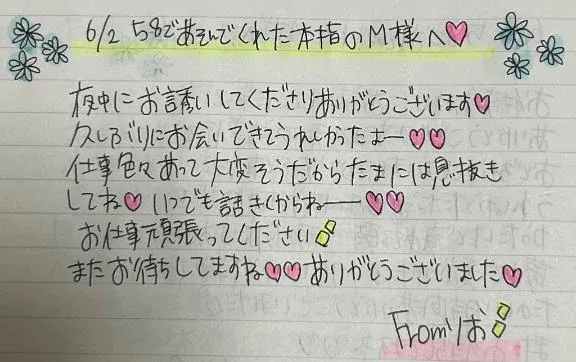 6/2 58であそんでくれた本指のM様へ♡
夜中にお誘いしてくださりありがとうございます♡
久しぶりにお会いできてうれしかったよー♡♡
仕事色々あって大変そうだからたまには息抜き
してね♡いつでも話きくからねー♡♡
お仕事頑張ってください!
またお待ちしてますね♡♡ありがとうございました♡
Fromりお!